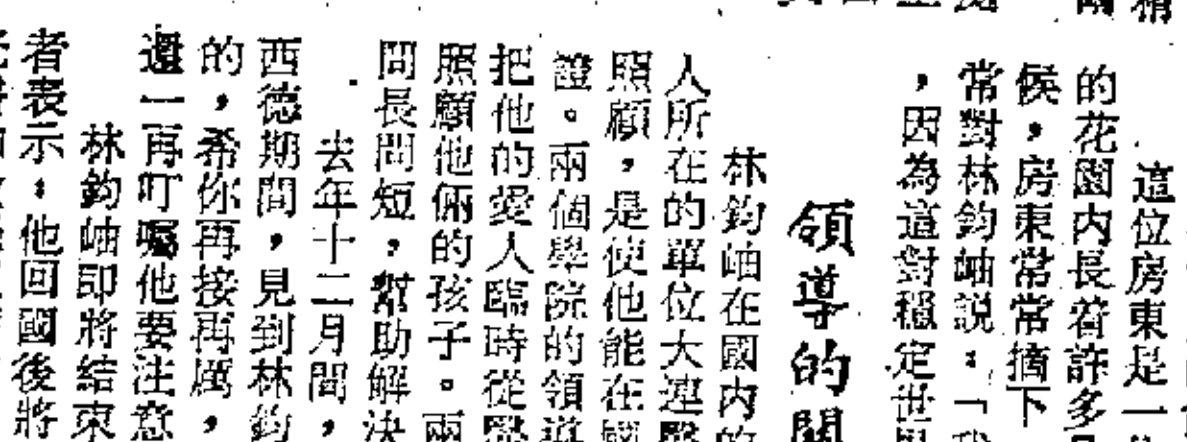 這位房東是一
的花園内長着許多
候，房東常常摘下
常對林鈞岫説：「我
，因為這對穩定世界
領導的關
林鈞岫在國内的
人所在的單位大連醫
照顧，是使他能在國
證。兩個學院的領導
把他的愛人臨時從
照顧他倆的孩子。兩
問長問短，幫助解決
去年十二月間，
西德期間，見到林鈞
的，希你再接再厲，
還一再叮囑他要注意
林鈞岫即將結束
者表示：他回國後將